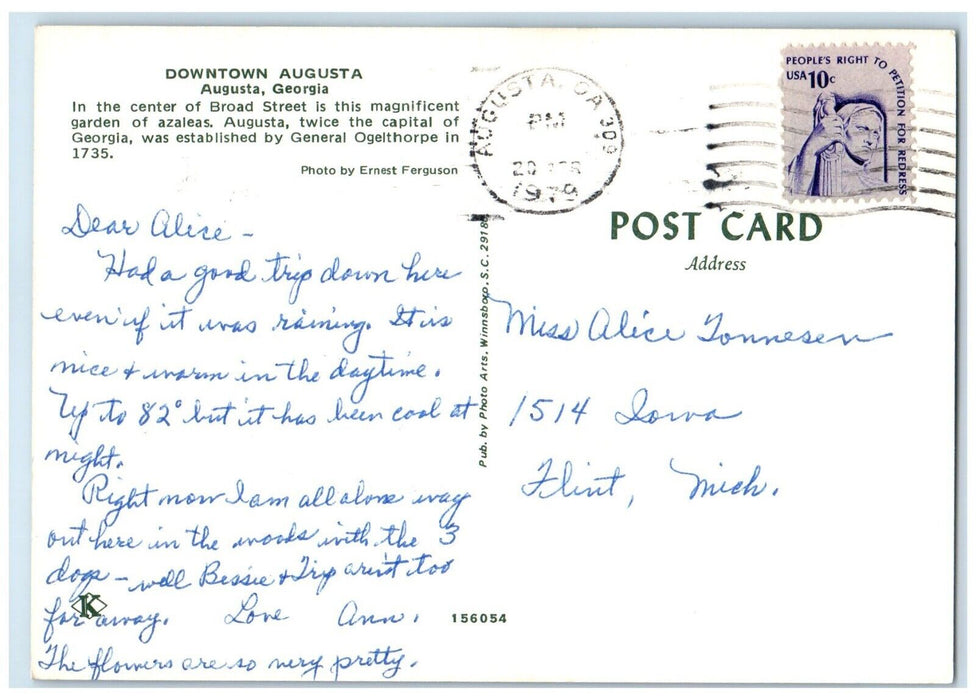 DOWNTOWN AUGUSTA
Augusta, Georgia
In the center of Broad Street is this magnificent
garden of azaleas. Augusta, twice the capital of
Georgia, was established by General Ogelthorpe in
1735.
Photo by Ernest Ferguson
AUGUSTA, GA 309
PM
20 APR
1979
PEOPLE'S RIGHT TO PETITION FOR REDRESS
USA 10c
POST CARD
Address
Pub. by Photo Arts. Winnsboro, S.C. 2918
Dear Alice -
Had a good trip down here
even if it was raining. It is
nice & warm in the daytime.
Up to 82° but it has been cool at
night.
Right now I am all alone way
out here in the woods with the 3
dogs - well Bessie & Trip arin't too
far away. Love Ann.
The flowers are so very pretty.
K
156054
Miss Alice Tonnesen
1514 Iowa
Flint, Mich.